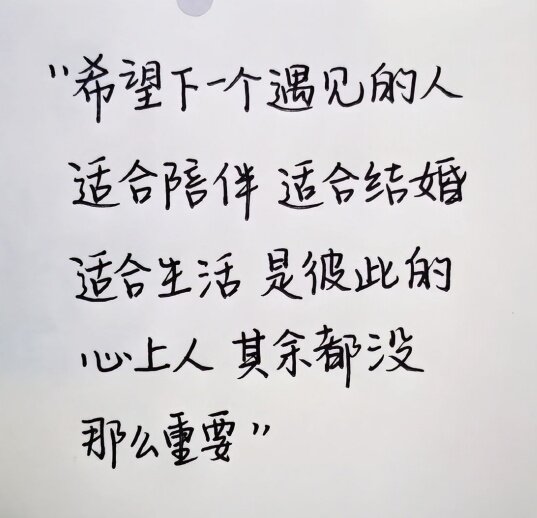 "希望下一个遇见的人
适合陪伴 适合结婚
适合生活 是彼此的
心上人 其余都没
那么重要"